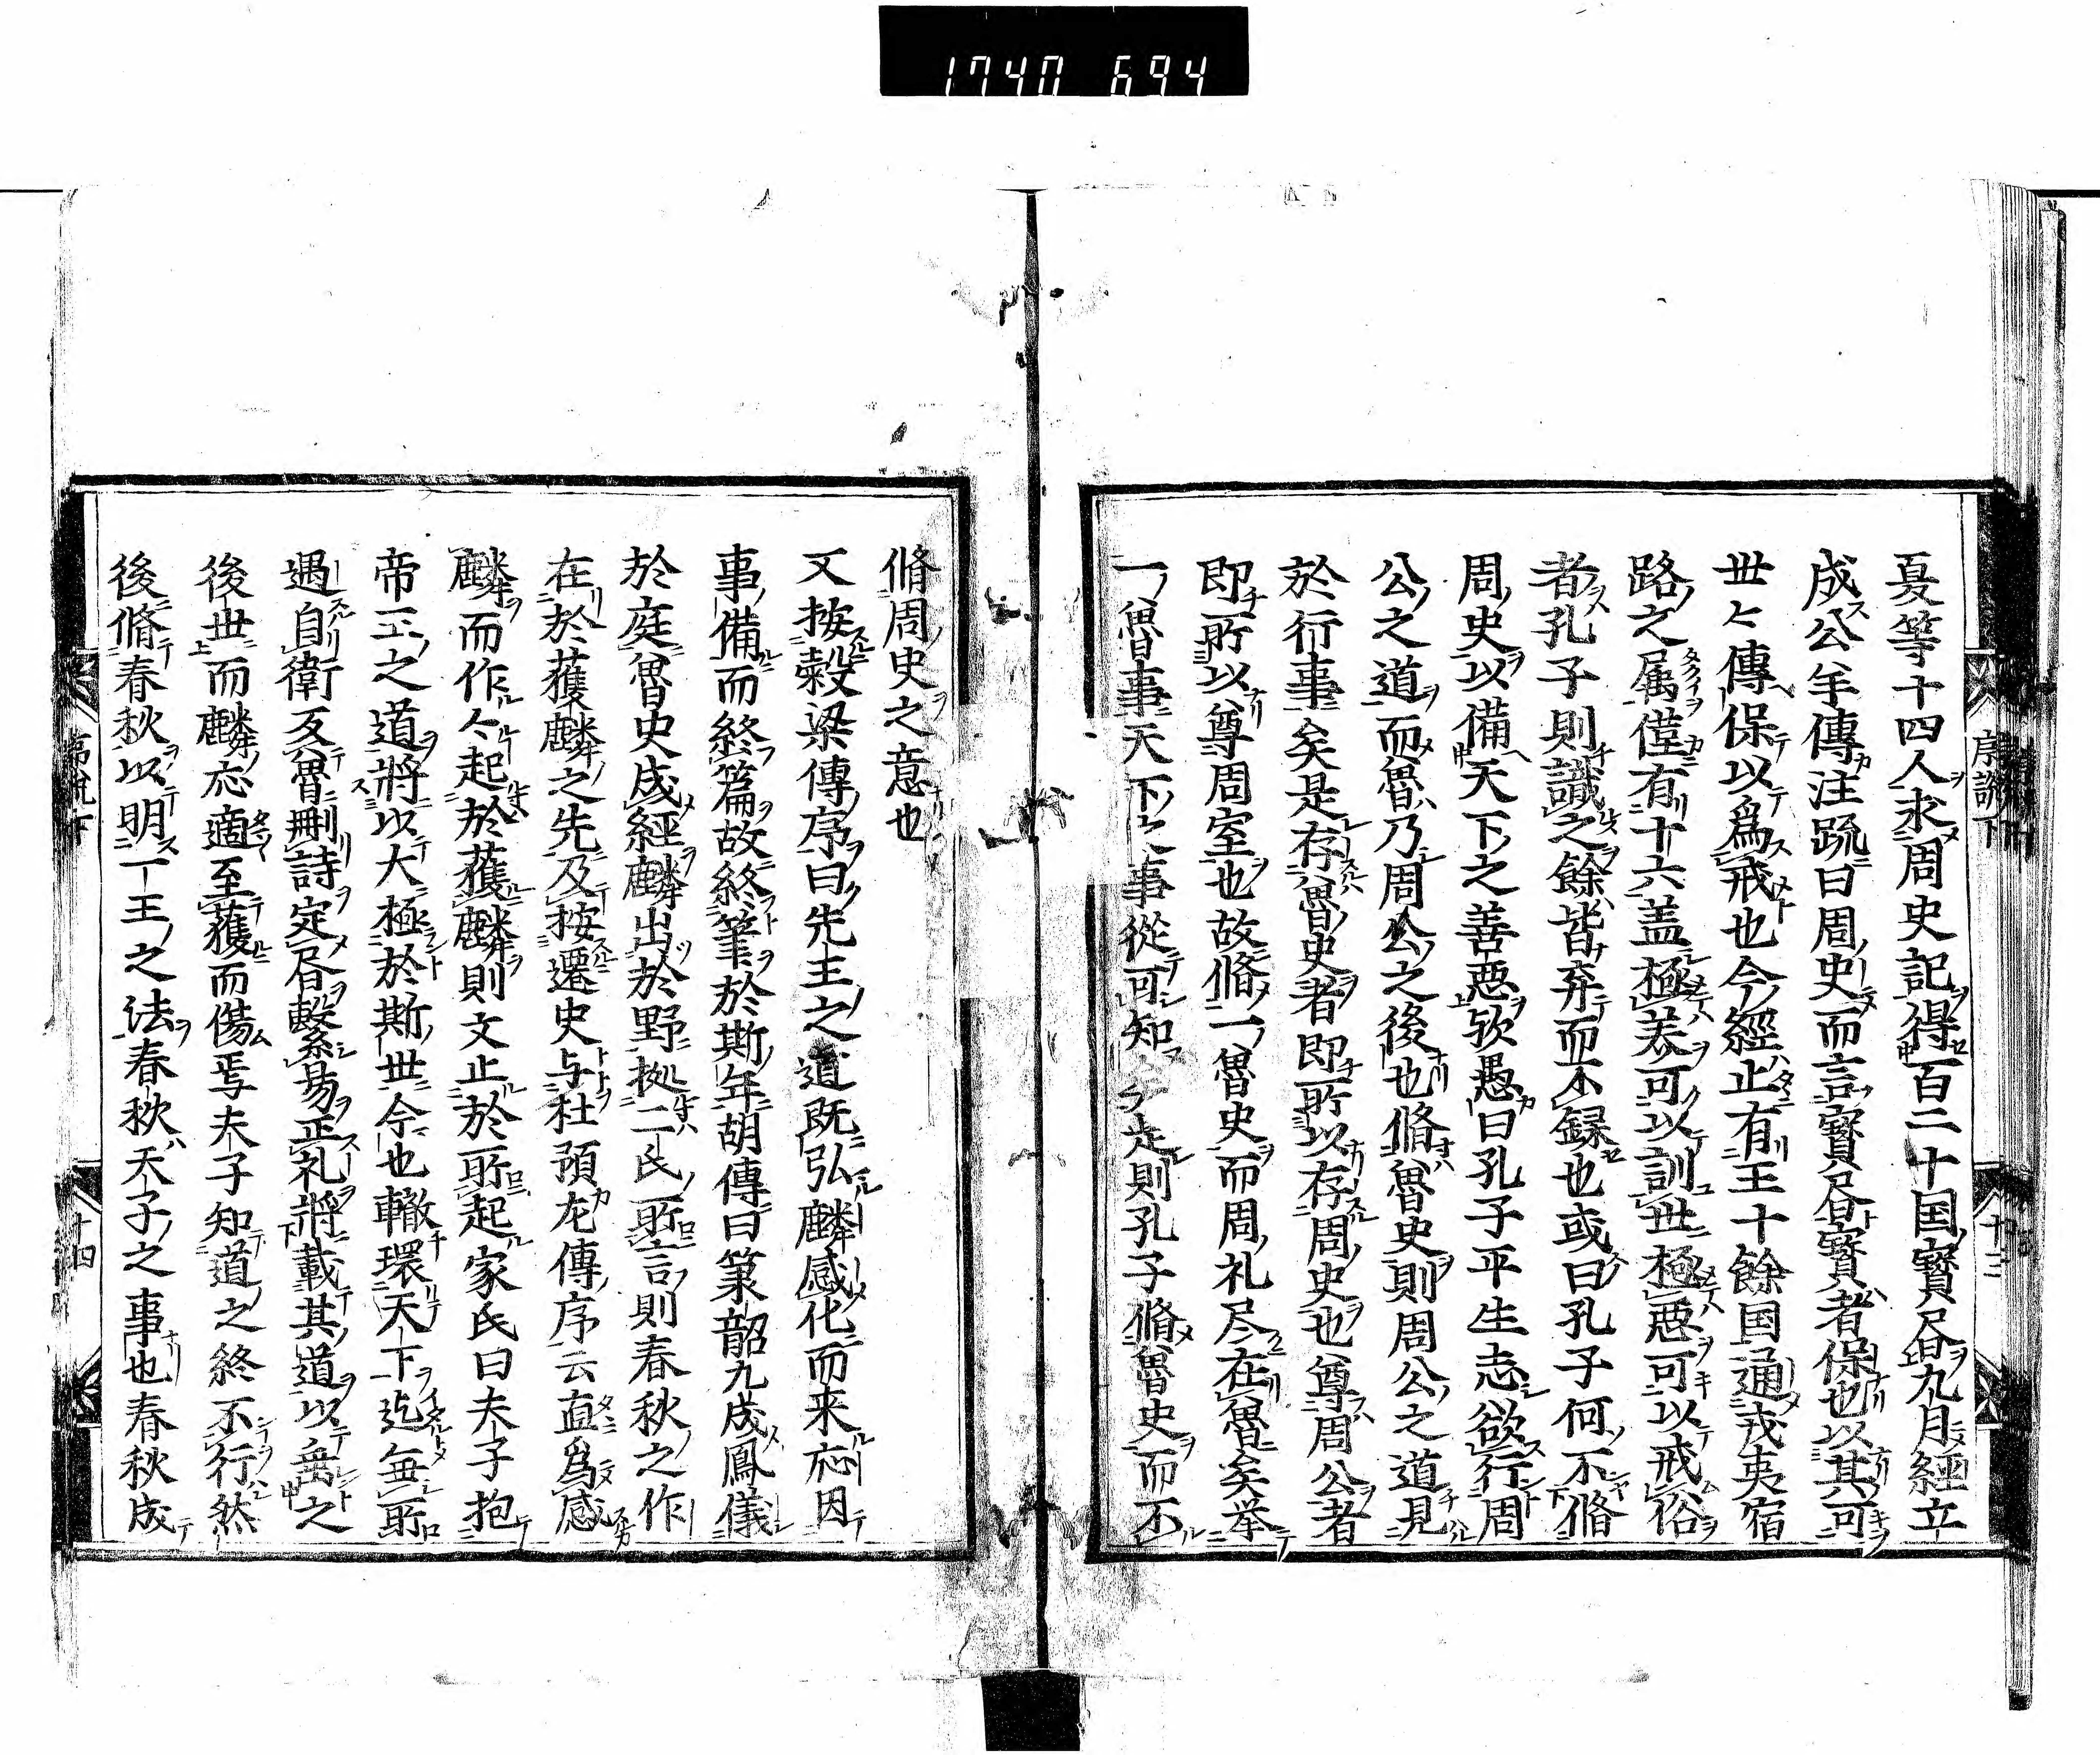 1740 694
序説下
十三
夏等十四人求周史記得百二十国寳書九月經立
成公羊傳注疏曰周史而言寳書寳者保也以其可
世〻傳保以爲戒也今經止有王十餘国通戎夷宿
路之属僅有十六盖極美可以訓世極悪可以戒俗
者孔子則識之餘皆弃而不録也或曰孔子何不脩
周史以備天下之善悪欤愚曰孔子平生志欲行周
公之道而魯乃周公之後也脩魯史則周公之道見
於行事矣是存魯史者即所以存周史也尊周公者
即所以尊周室也故脩一魯史而周礼尽在魯矣挙
一魯事天下之事從可知是則孔子脩魯史而不
脩周史之意也
又按穀梁傳序曰先王之道既弘麟感化而来応因
事備而終篇故終筆於斯年胡傳曰簫韶九成鳳儀
於庭魯史成經麟出於野拠二氏所言則春秋之作
在於獲麟之先及按遷史与杜預左傳序云直爲感
麟而作作起於獲麟則文止於所起家氏曰夫子抱
帝王之道將以大極於斯世今也轍環天下迄無所
遇自衛反魯刪詩定書繋昜正礼將載其道以垂之
後世而麟応適至獲而傷焉夫子知道之終不行然
後脩春秋以明一王之法春秋天子之事也春秋成
十四